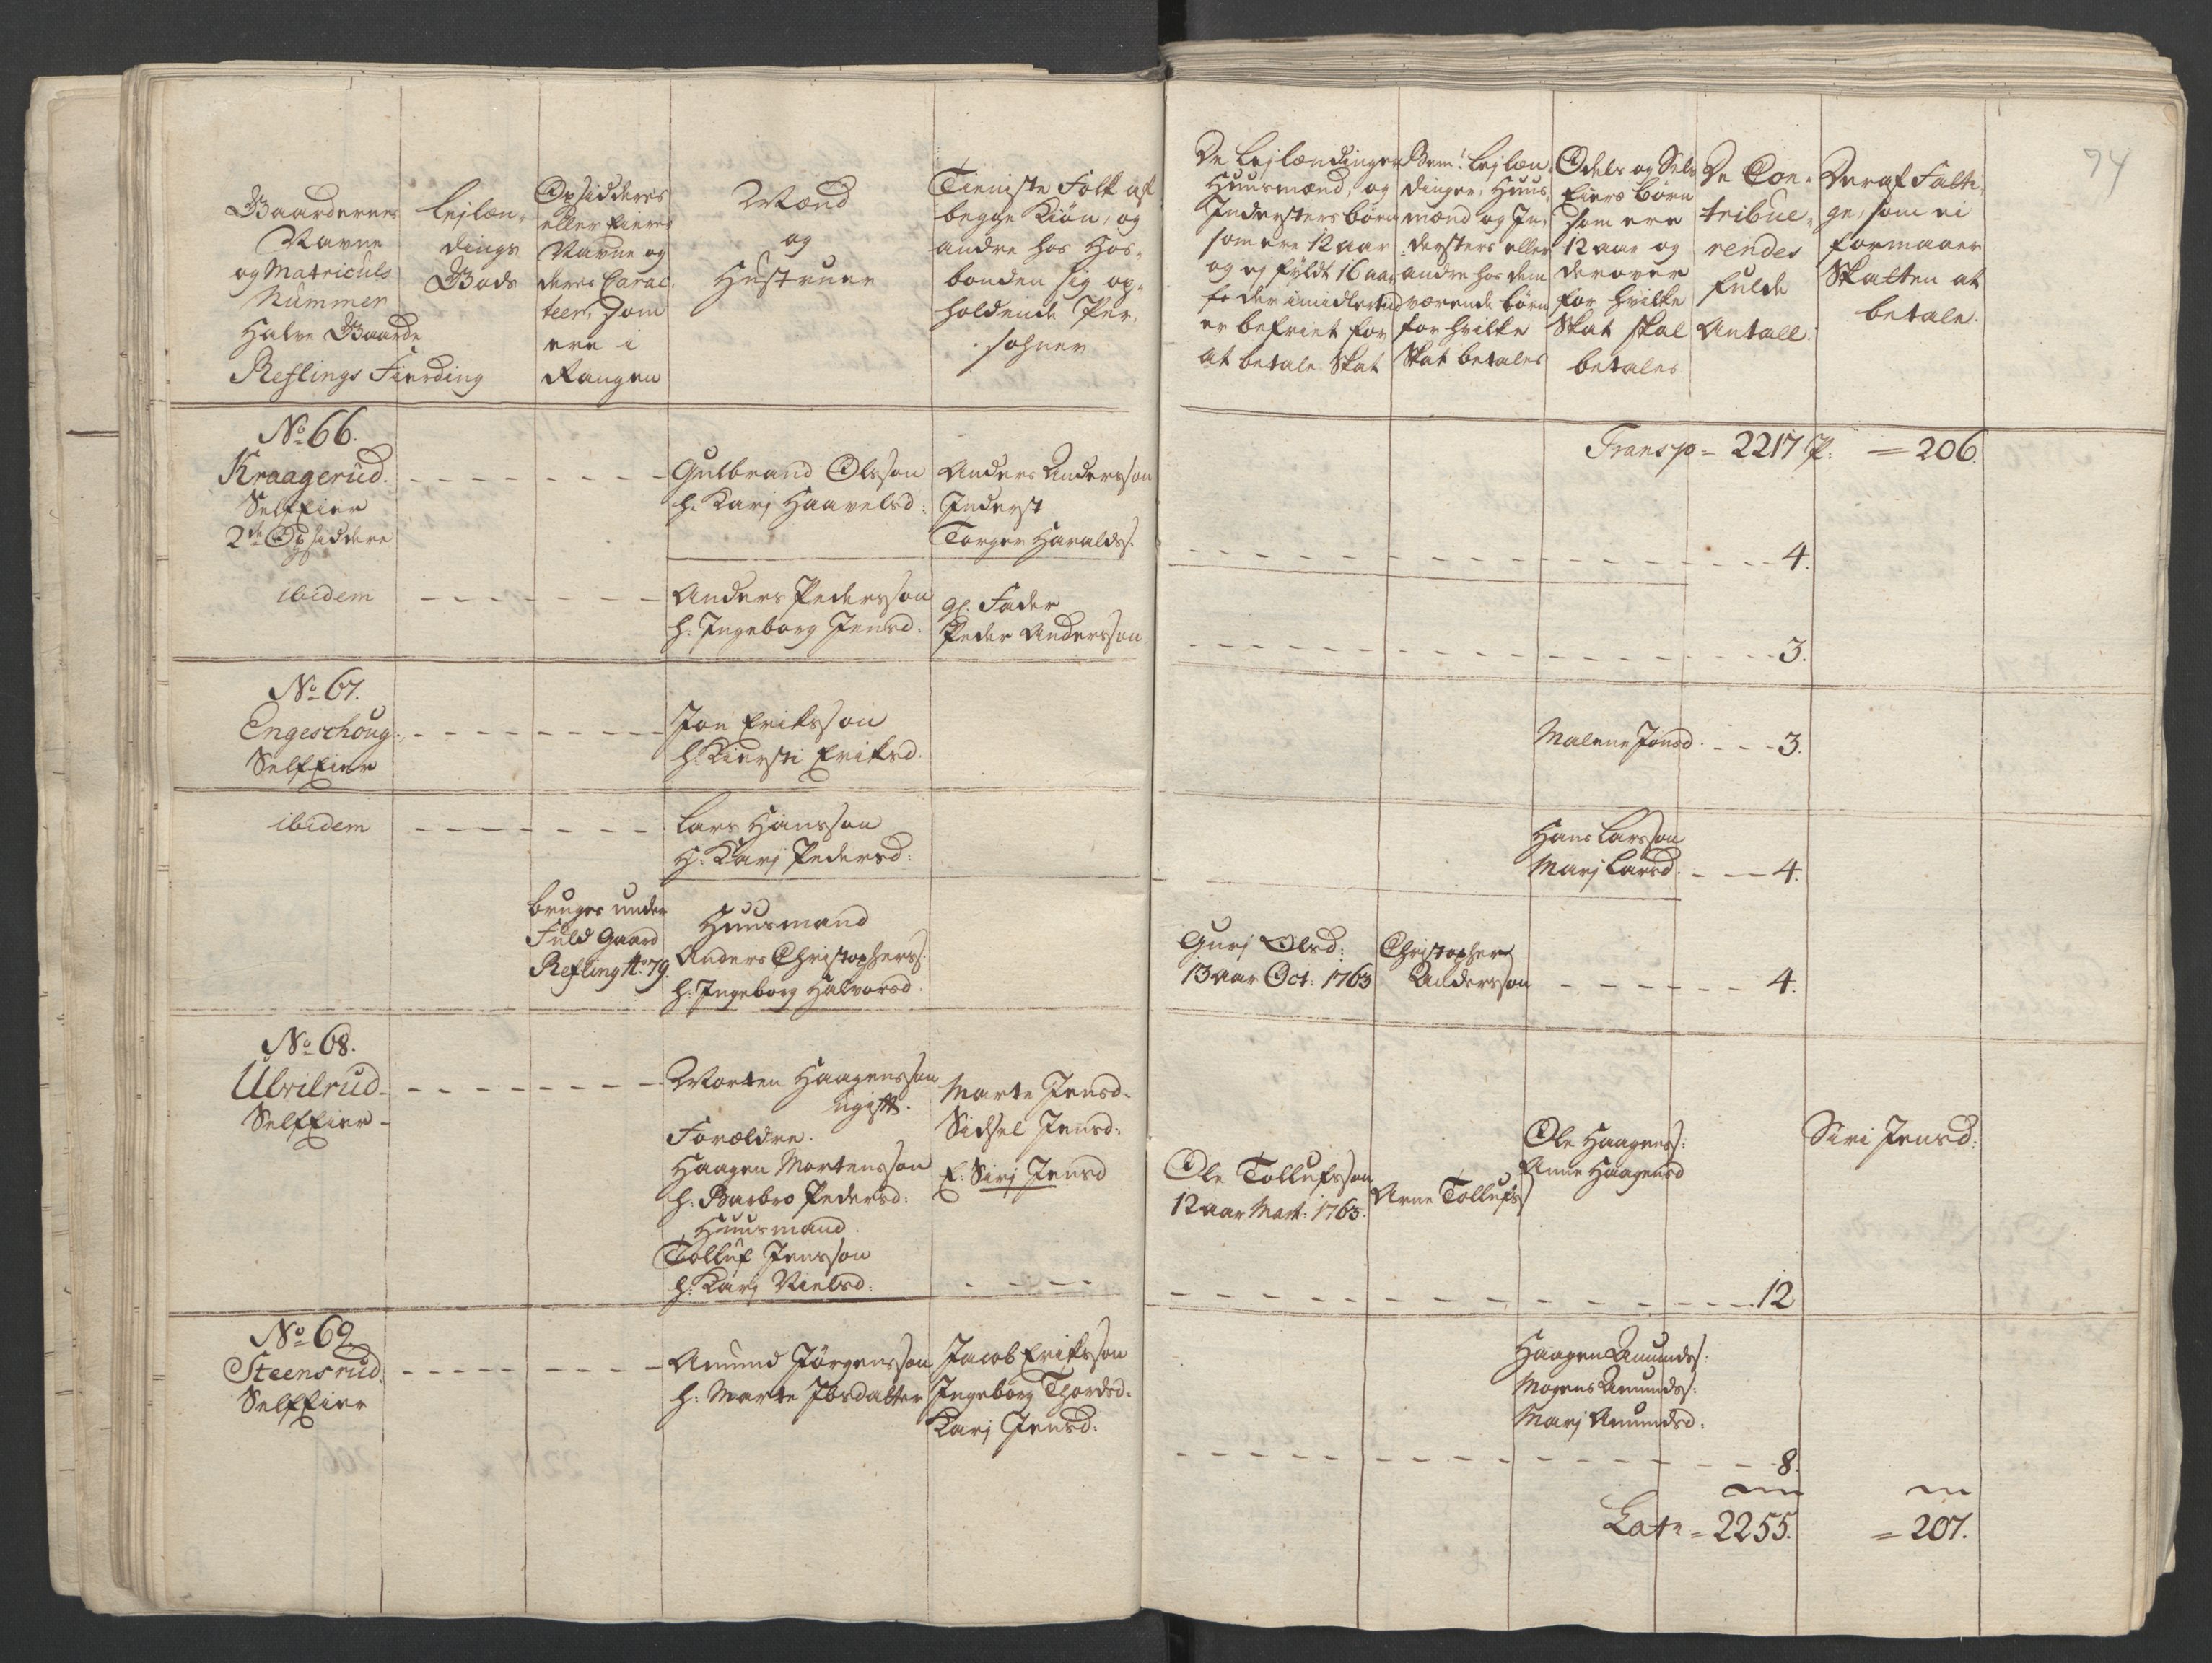 Gaardernes
Navne
og Matriculs
Nummer
Halve Gaarde
Reflings Fierding
Lejlæn-
dings
Gods
Opsidderes
eller Eieres
Navne og
deres Carac-
teer, som
ere i
Rangen
Mænd
og
Hustruer
Tieniste Folk af
begge Kiøn, og
andre hos Hos-
bonden sig op-
holdende Per-
sohner
De Lejlændinger
Huusmænd, og
Indersters børn
som ere 12 aar
og ej fyldt 16 aar
for der imidlertid
er befriet for
at betale Skat
Bem:te Lejlæn-
dinger, Huus-
mænd og In-
dersters eller
andre hos dem
værende børn
for hvilke
Skat betales
Odels og Selv
Eiers børn
som ere
12 aar og
derover
for hvilke
Skat skal
betales
De Con-
tribue-
rendes
fulde
Antall.
Deraf Fatti-
ge, som ei
formaaer
Skatten at
betale.
74
Transp = 2217 P: = 206.
No 66.
Kraagerud.
SelfEier
2de Opsiddere
Gulbrand Olsson
h. Karj Haavelsd:
Anders Andersson
Inderst
Torger Haralds:
4.
ibidem
Anders Pedersson
h. Ingeborg Jensd:
gl. Fader
Peder Andersson
3.
No 67.
Engeschoug.
SelfEier
Jon Eriksson
h. Kiersti Eriksd.
Malene Jonsd. 3.
ibidem
Lars Hansson
H. Karj Pedersd:
Hans Larsson
Marj Larsd. 4.
bruges under
Fuld Gaard
Refling No 79.
Huusmand
Anders Christophers:
h. Ingeborg Halvorsd.
Gurj Olsd:
13 aar Oct: 1763
Christopher
Andersson
4.
No 68.
Ulvilrud
SelfEier
Morten Haagensson
ugift.
Forældre.
Haagen Mortensson
h. Barbro Pedersd:
Huusmand.
Tolluf Jensson
h. Karj Nielsd:
Marte Jensd.
Sidsel Jensd:
E. Sirj Jensd
Ole Tollufsson
12 aar Mart: 1763.
Arne Tollufs:
Ole Haagens:
Anne Haagensd
Siri Jensd:
12
No 69
Steensrud.
SelfEier
Amund Jörgensson
h: Marte Ibsdatter
Jacob Eriksson
Ingeborg Thordsd:
Karj Jensd:
Haagen Amunds:
Mogens Amunds:
Marj Amundsd:
8.
Lat = 2255. = 207.